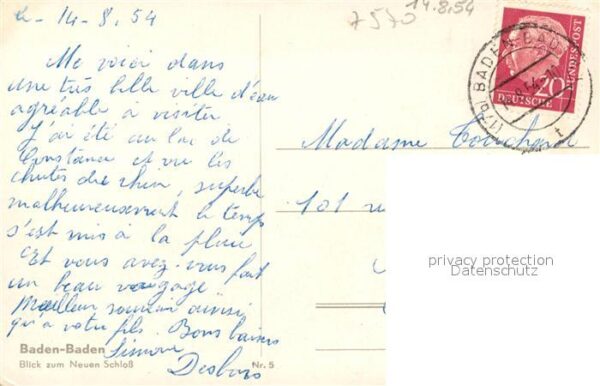 le 14-8.54
7570
14.8.54
Me voici dans
une très belle ville d'eau
agréable à visiter
J'ai été au lac de
Constance et vu les
chutes du rhin, superbe
malheureusement le temps
s'est mis à la pluie
Et vous avez-vous fait
un beau voyage
Meilleur souvenir ainsi
qu'à votre fils. Bons baisers
Simone
Baden-Baden
Blick zum Neuen Schloß
Nr. 5
Madame
101
BADEN-BADEN
20
DEUTSCHE
BUNDESPOST
privacy protection
Datenschutz